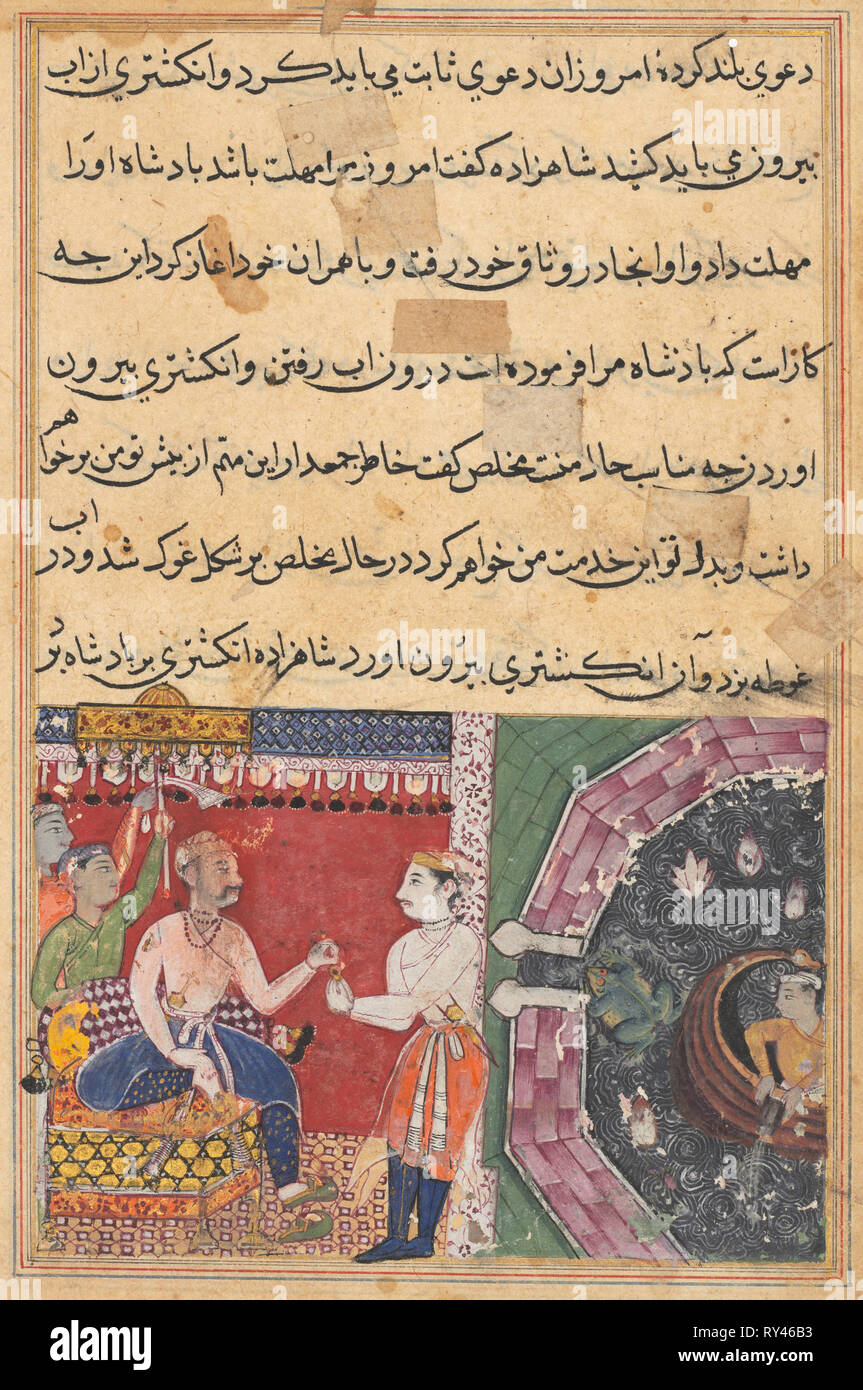 دعوي بلند کردهٔ امروز ان دعوي ثابت مي بايد کرد و انکشتري از اب
بيرون مي بايد کشيد شاهزاده کفت امروز مرا مهلت باشد بادشاه اورا
مهلت داد و او انجا در وثاق خود رفت و با همران خود اغاز کرد اين جه
کار است که بادشاه مرا فرموده است درون اب رفتن و انکشتري بيرون
اوردن جه مناسب حال منست مخلص کفت خاطر جمعدار اين مهم از بيش تو من بر خواهم
داشت و بدل تو اين خدمت من خواهم کرد در حال مخلص بر شکل غوک شد و در اب
غوطه بزد و آن انکشتري بيرون اورد شاهزاده انکشتري بر بادشاه برد
alamy
a
a
a
alamy
Image ID: RY46B3
www.alamy.com